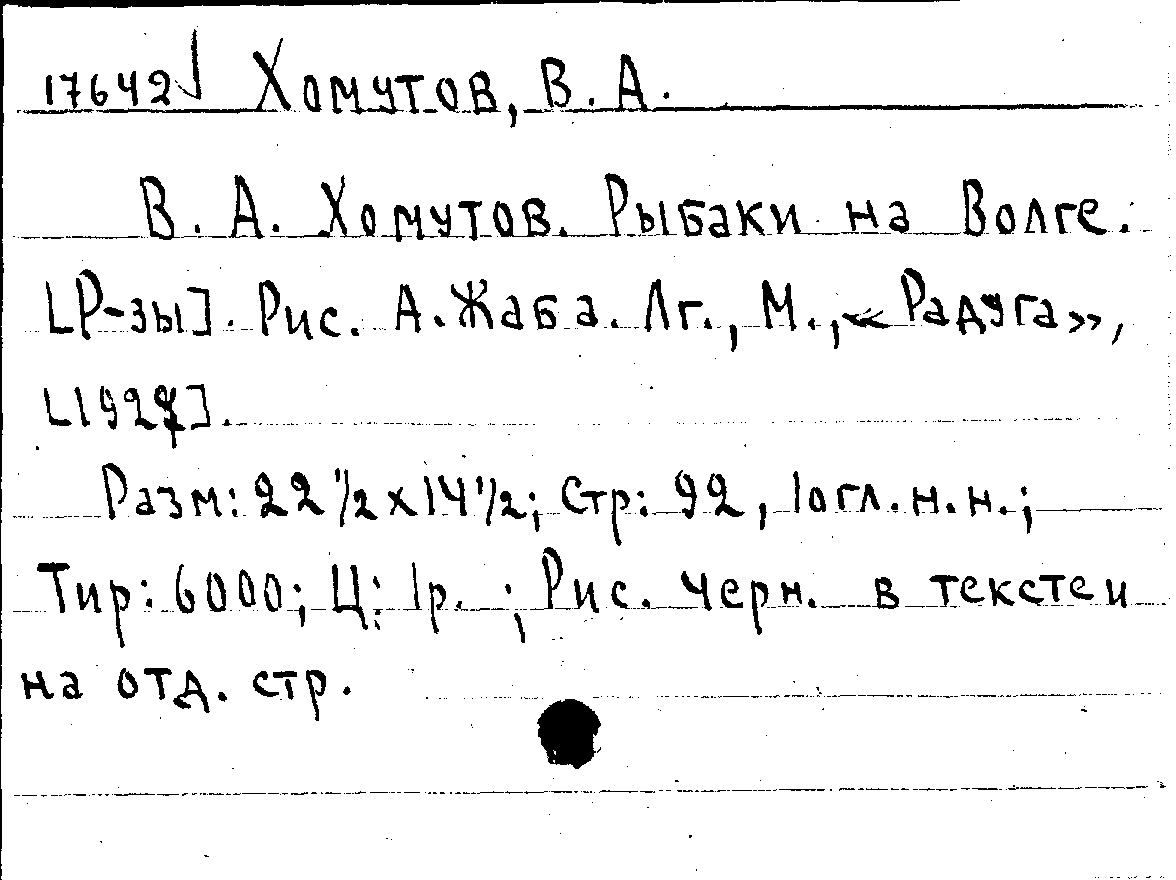 17642 Хомутов, В. А.
В. А. Хомутов. Рыбаки на Волге.
[Р-зы]. Рис. А. Жаба. Лг., М., «Радуга»,
[1927].
Разм: 22 1/2 х 14 1/2; Стр: 92, 1 огл. н. н.;
Тир: 6000; Ц: 1р. ; Рис. черн. в тексте и
на отд. стр.